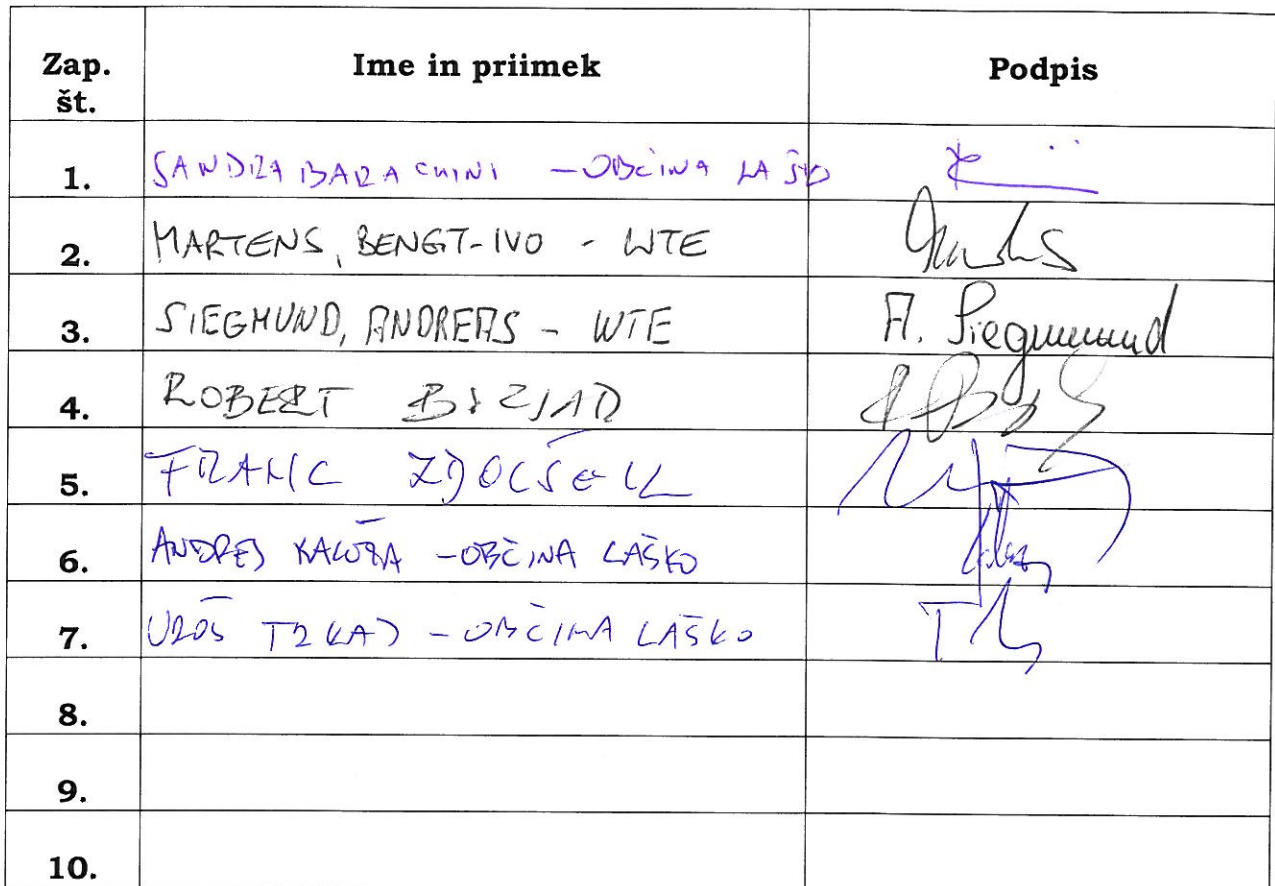 Zap. št. Ime in priimek Podpis
1. SANDRA BARACHINI - OBČINA LAŠKO
2. MARTENS, BENGT-IVO - WTE
3. SIEGMUND, ANDREAS - WTE A. Siegmund
4. ROBERT
5. FRANC
6. ANDREJ KALUŽA - OBČINA LAŠKO
7. UROŠ - OBČINA LAŠKO
8.
9.
10.